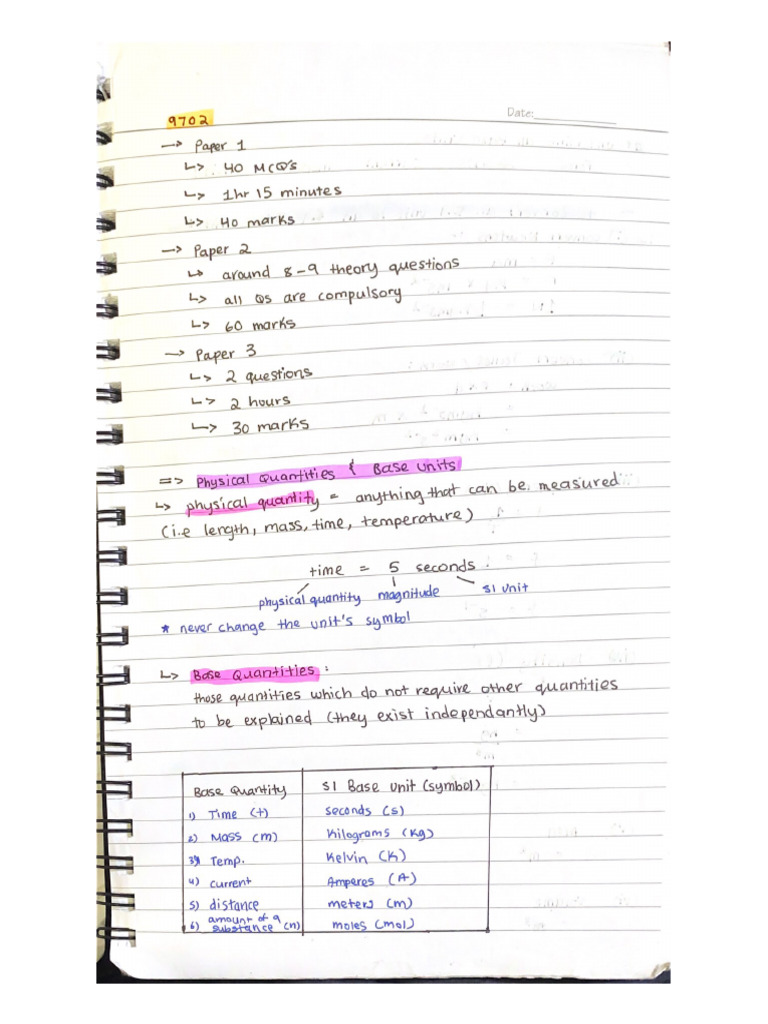 Date:
9702
→ Paper 1
↳ 40 MCQ's
↳ 1hr 15 minutes
↳ 40 marks
→ Paper 2
↳ around 8-9 theory questions
↳ all Qs are compulsory
↳ 60 marks
→ Paper 3
↳ 2 questions
↳ 2 hours
↳ 30 marks
=> Physical Quantities & Base Units
↳ physical quantity = anything that can be measured
(i.e length, mass, time, temperature)
time = 5 seconds
physical quantity magnitude SI unit
* never change the unit's symbol
↳ Base Quantities:
those quantities which do not require other quantities
to be explained (they exist independantly)
Base Quantity SI Base Unit (symbol)
1) Time (t) seconds (s)
2) Mass (m) Kilograms (Kg)
3) Temp. Kelvin (K)
4) current Amperes (A)
5) distance meters (m)
6) amount of a substance (n) moles (mol)